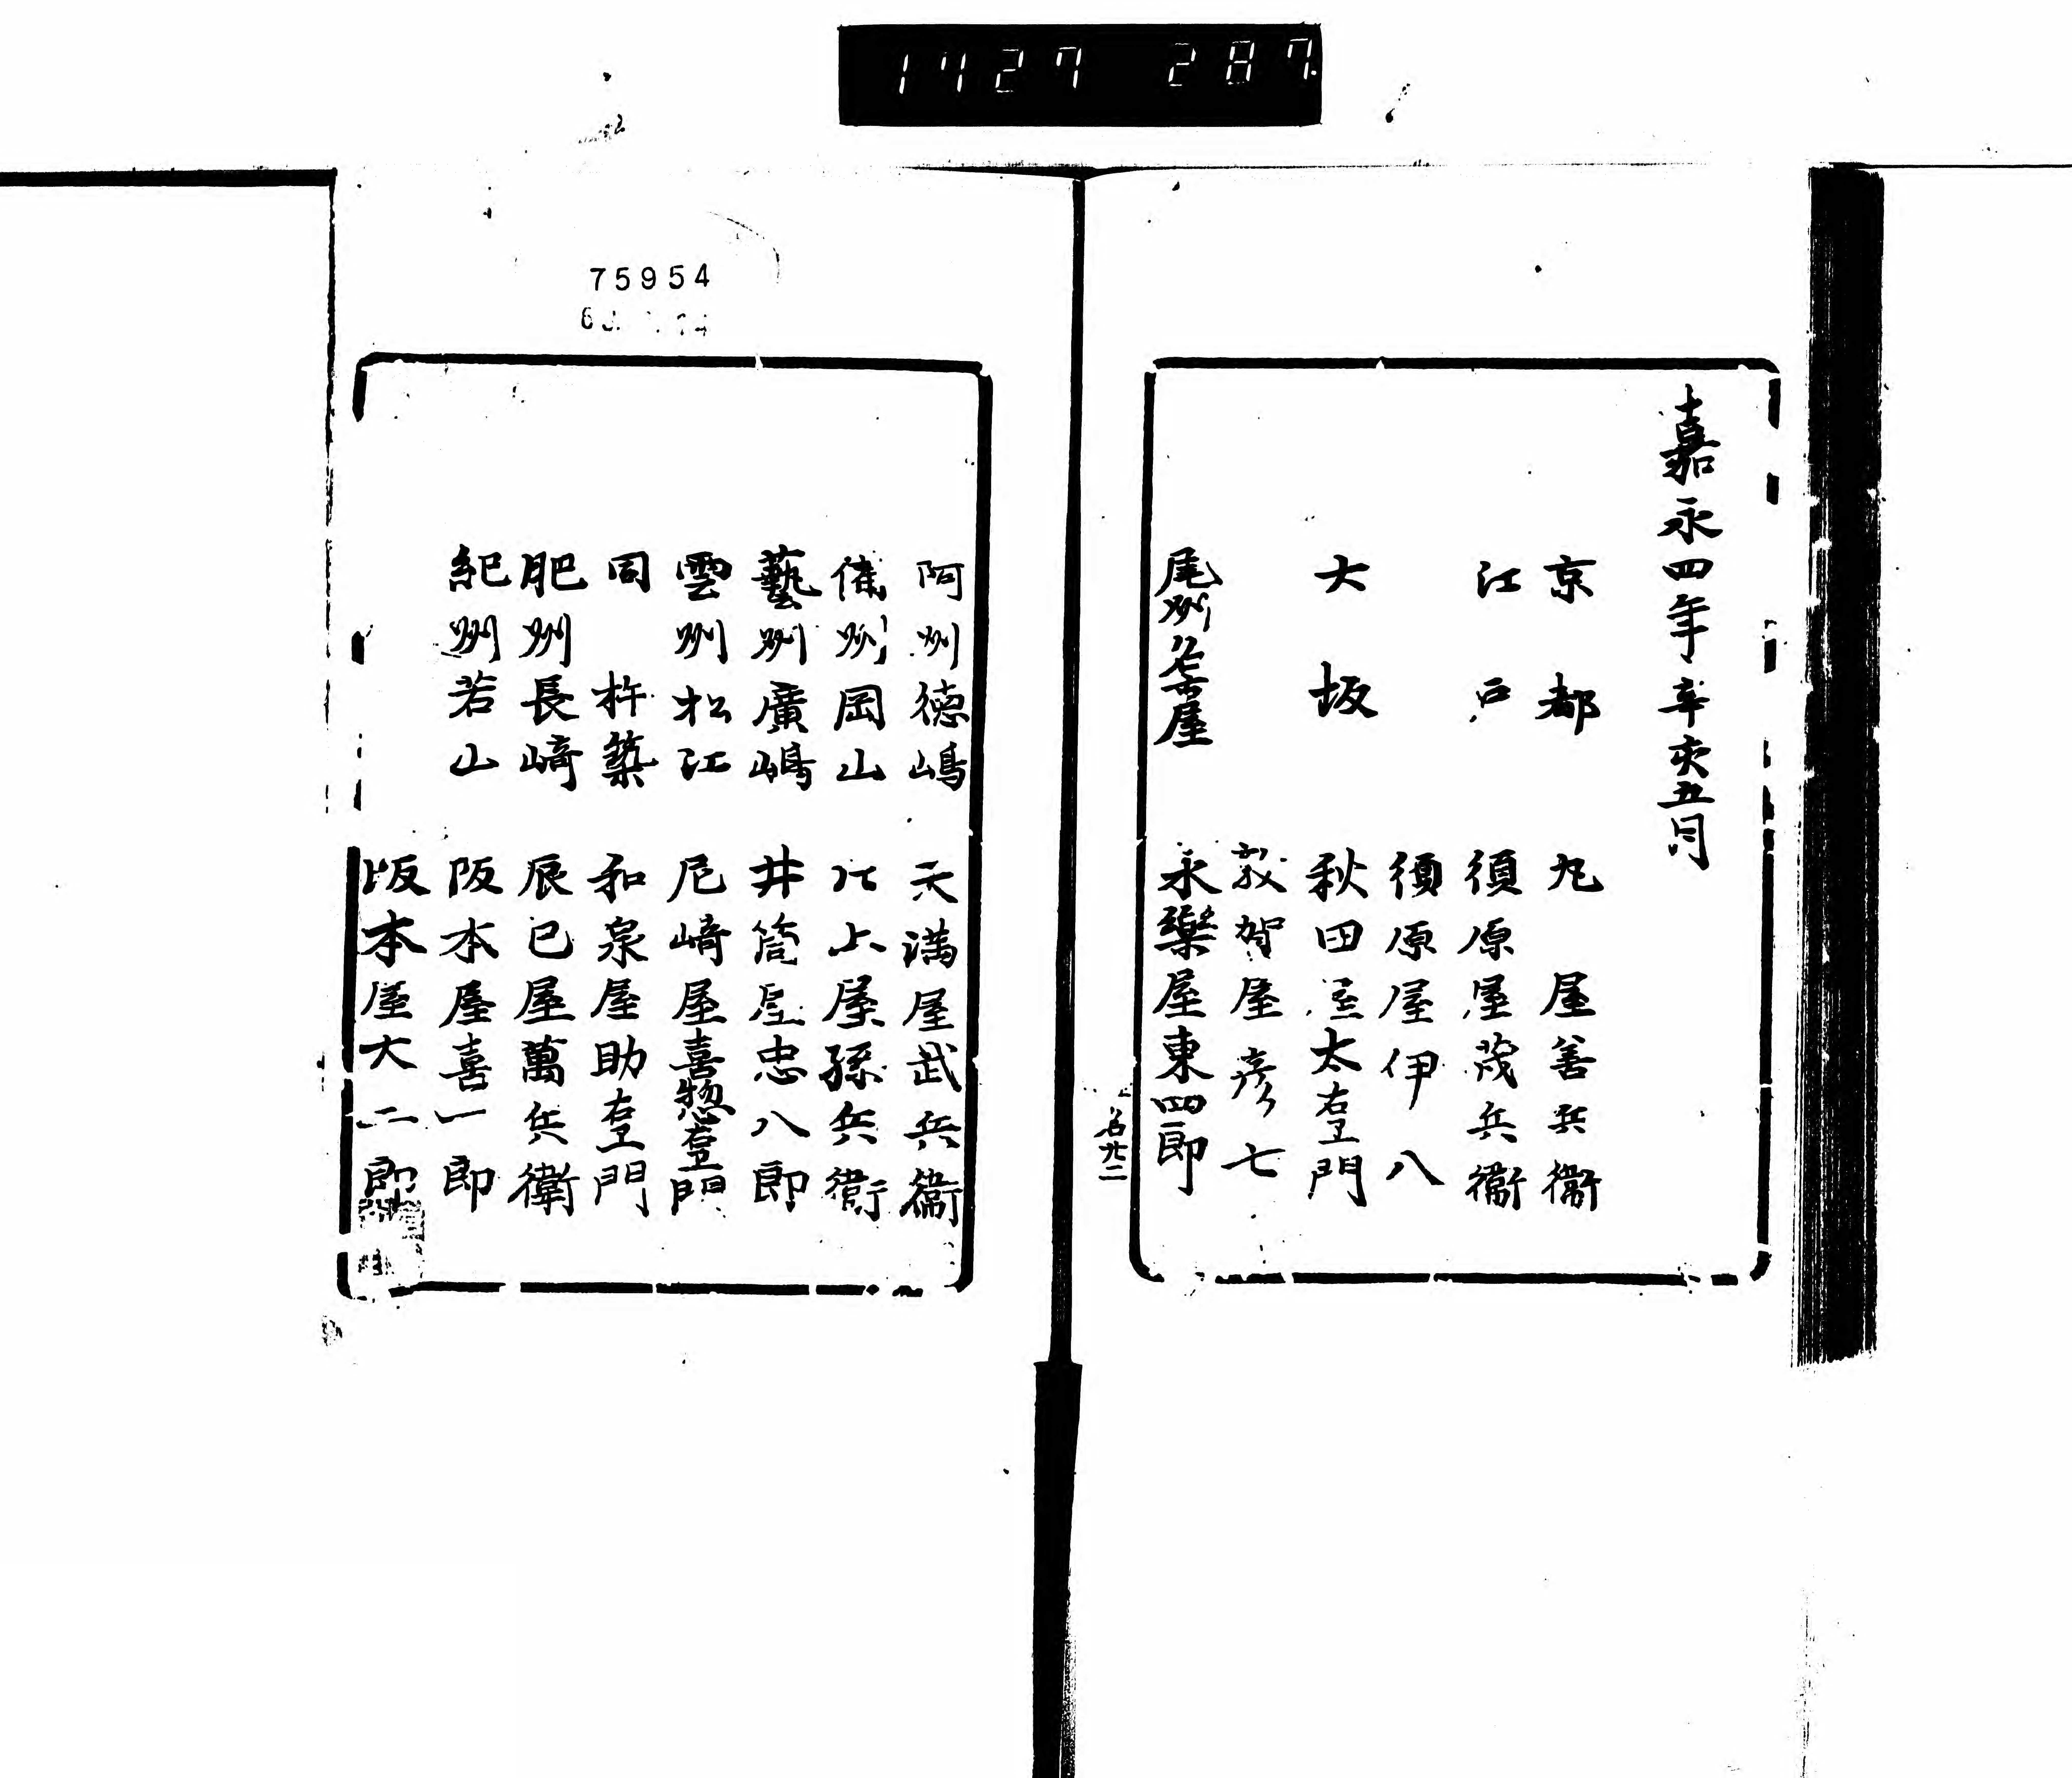 1427 287
嘉永四年辛亥五月
京都 丸屋善兵衞
江戸 須原屋茂兵衞
須原屋伊八
大坂 秋田屋太右エ門
敦賀屋彦七
尾州名古屋 永樂屋東四郎
名廿二
75954
阿州德嶋 天満屋武兵衞
備州岡山 井上屋孫兵衞
藝州廣嶋 井筒屋忠八郎
雲州松江 尼﨑屋喜惣右エ門
同 杵築 和泉屋助右エ門
肥州長﨑 辰巳屋萬兵衛
紀州若山 阪本屋喜一郎
坂本屋大二郎